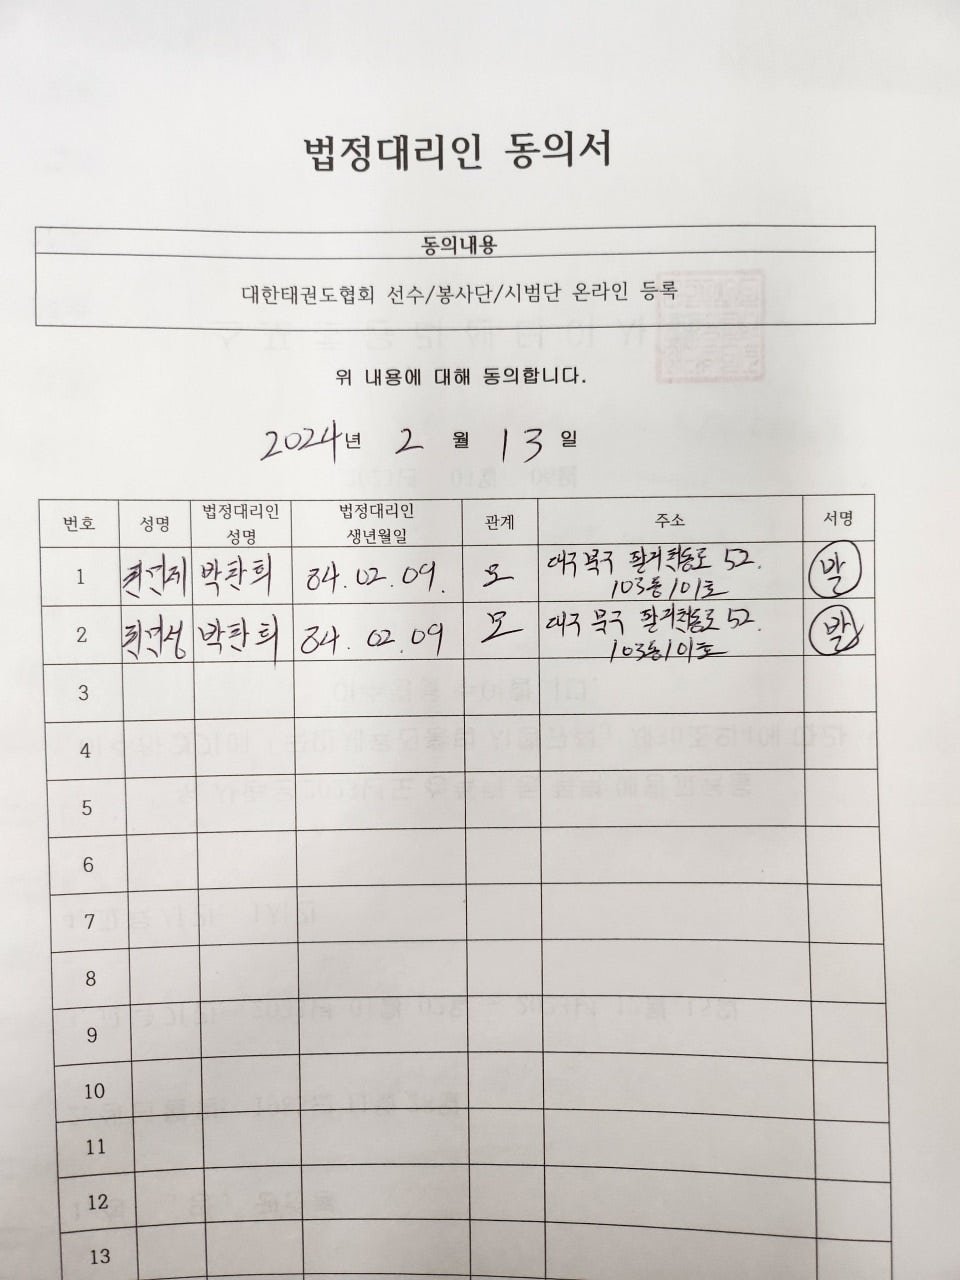 법정대리인 동의서
동의내용
대한태권도협회 선수/봉사단/시범단 온라인 등록
위 내용에 대해 동의합니다.
2024년 2 월 13 일
번호 성명 법정대리인 성명 법정대리인 생년월일 관계 주소 서명
1 박찬희 84.02.09. 모 대구 북구 52.
103동 101호
2 박찬희 84.02.09 모 대구 북구 52.
103동 101호
3
4
5
6
7
8
9
10
11
12
13